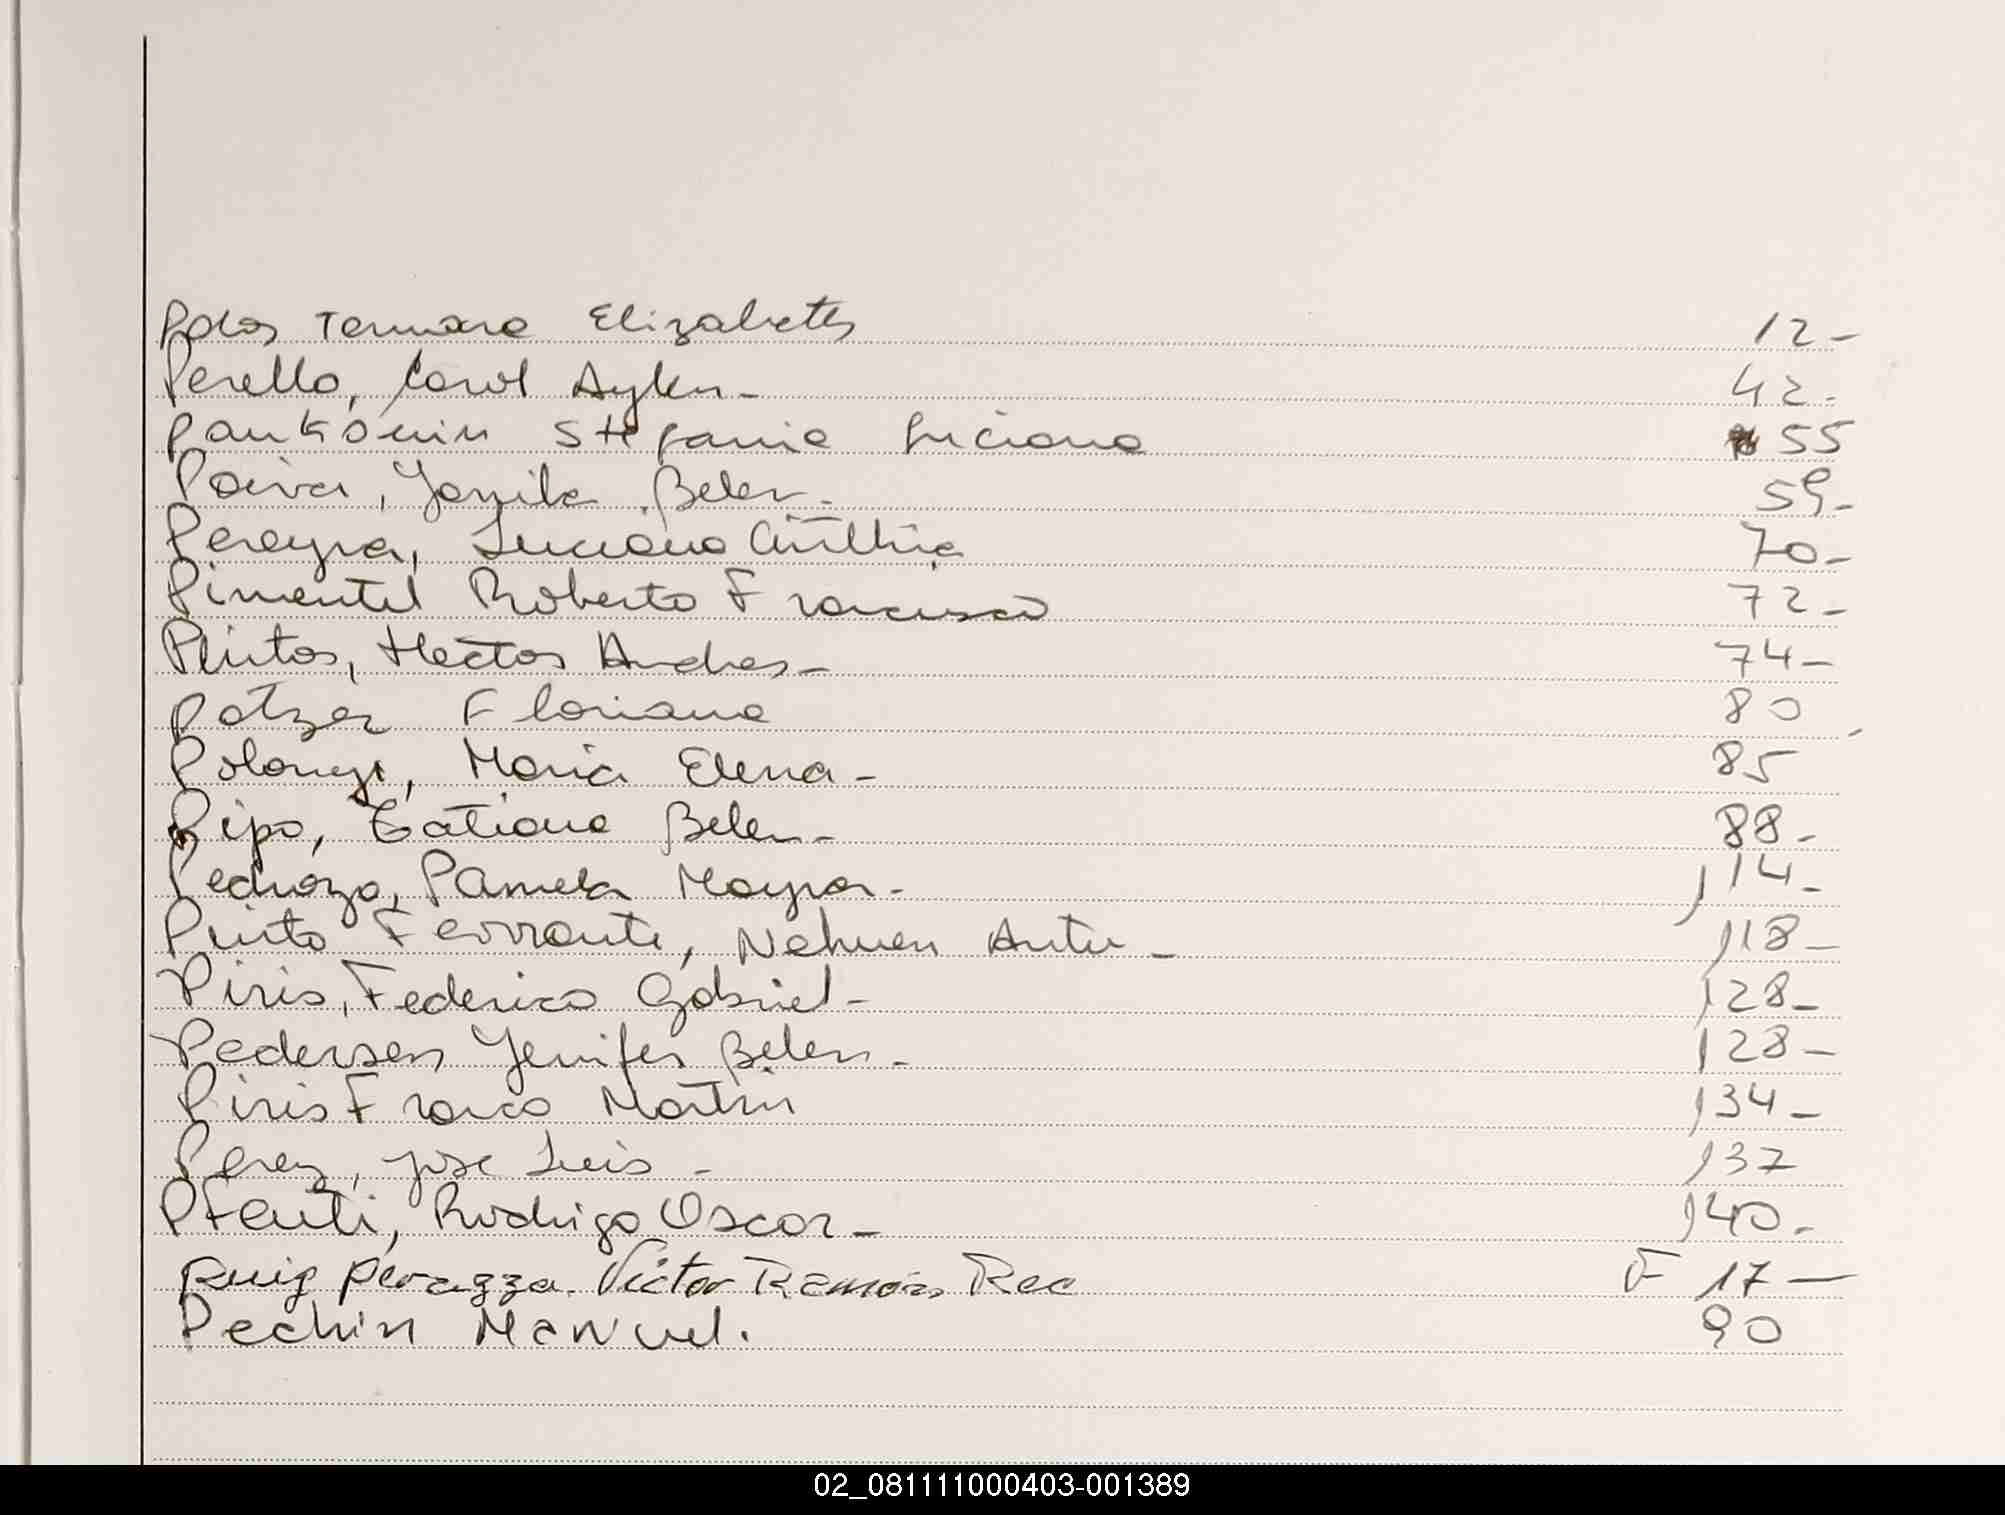 Polos Tamara Elizabeth 12-
Perello, Carol Aylen- 42-
Pankonin Stefanie Luciana 55
Paiva, Yamila Belen- 59-
Pereyra, Luciana Cinthia 70-
Pimentel Roberto Francisco 72-
Pintos, Hector Andres- 74-
Patzer Floriana 80
Polonyi, Maria Elena- 85
Pipo, Tatiana Belen- 88-
Pedrozo, Pamela Mayra- 114-
Pinto Ferrante, Nehuen Antu- 118-
Piris, Federico Gabriel- 128-
Pedersen Yenifer Belen- 128-
Piris Franco Martin 134-
Perez, Jose Luis- 137
Rodrigo Oscar- 140-
Puig Perazza. Victor Ramón Rec F 17-
Pechin Manuel. 90
02_081111000403-001389